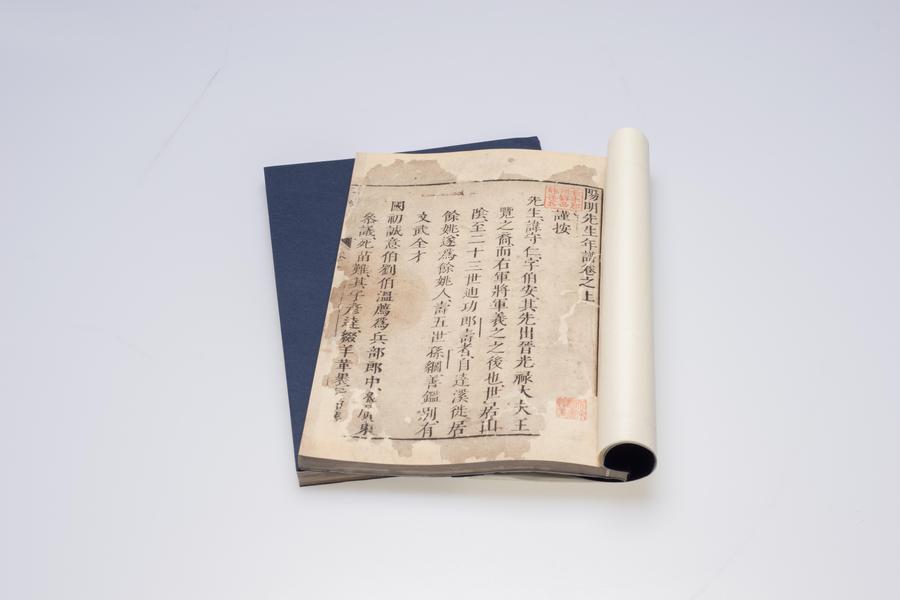 陽明先生年譜卷之上
謹按
先生諱守仁字伯安其先出晉光祿大夫王
覽之裔而右軍將軍羲之之後也世居山
陰至二十三世迪功郎壽者自達溪徙居
餘姚遂爲餘姚人壽五世孫綱善鑑別有
文武全才
國初誠意伯劉伯溫薦爲兵部郎中
參議死苗難其子彥達綴羊革裹